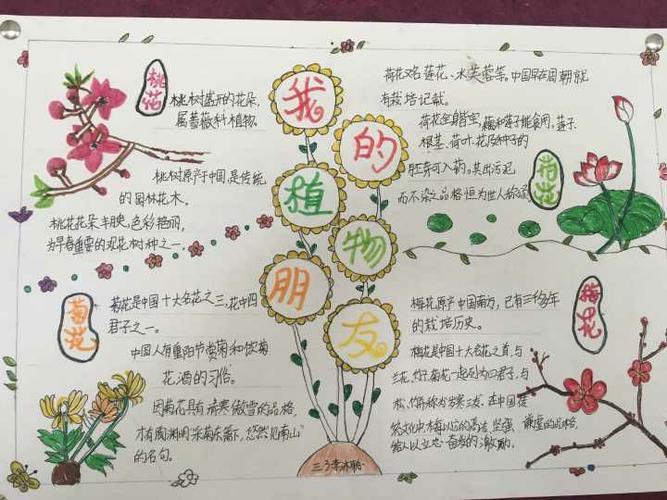 我的植物朋友
桃花
桃树盛开的花朵,
属蔷薇科植物
桃树原产中国,是传统
的园林花木。
桃花花朵丰腴,色彩艳丽,
为早春重要的观花树种之一
荷花又名莲花、水芙蓉等。中国早在周朝就
有栽培记载。
荷花全身皆宝,藕和莲子能食用,莲子、
根茎、荷叶、花及种子的
胚芽可入药。其出污泥
而不染之品格恒为世人称颂
荷花
菊花
菊花是中国十大名花之三,花中四
君子之一。
中国人有重阳节赏菊和饮菊
花酒的习俗。
因菊花具有清寒傲雪的品格,
才有陶渊明“采菊东篱下,悠然见南山”
的名句。
梅花
梅花原产中国南方,已有三千多年
的栽培历史。
梅花是中国十大名花之首,与
兰花、竹子、菊花一起列为四君子,与
松、竹并称为岁寒三友。在中国传
统文化中,梅以它的高洁、坚强、
谦虚的品格,
给人以立志奋发的激励。